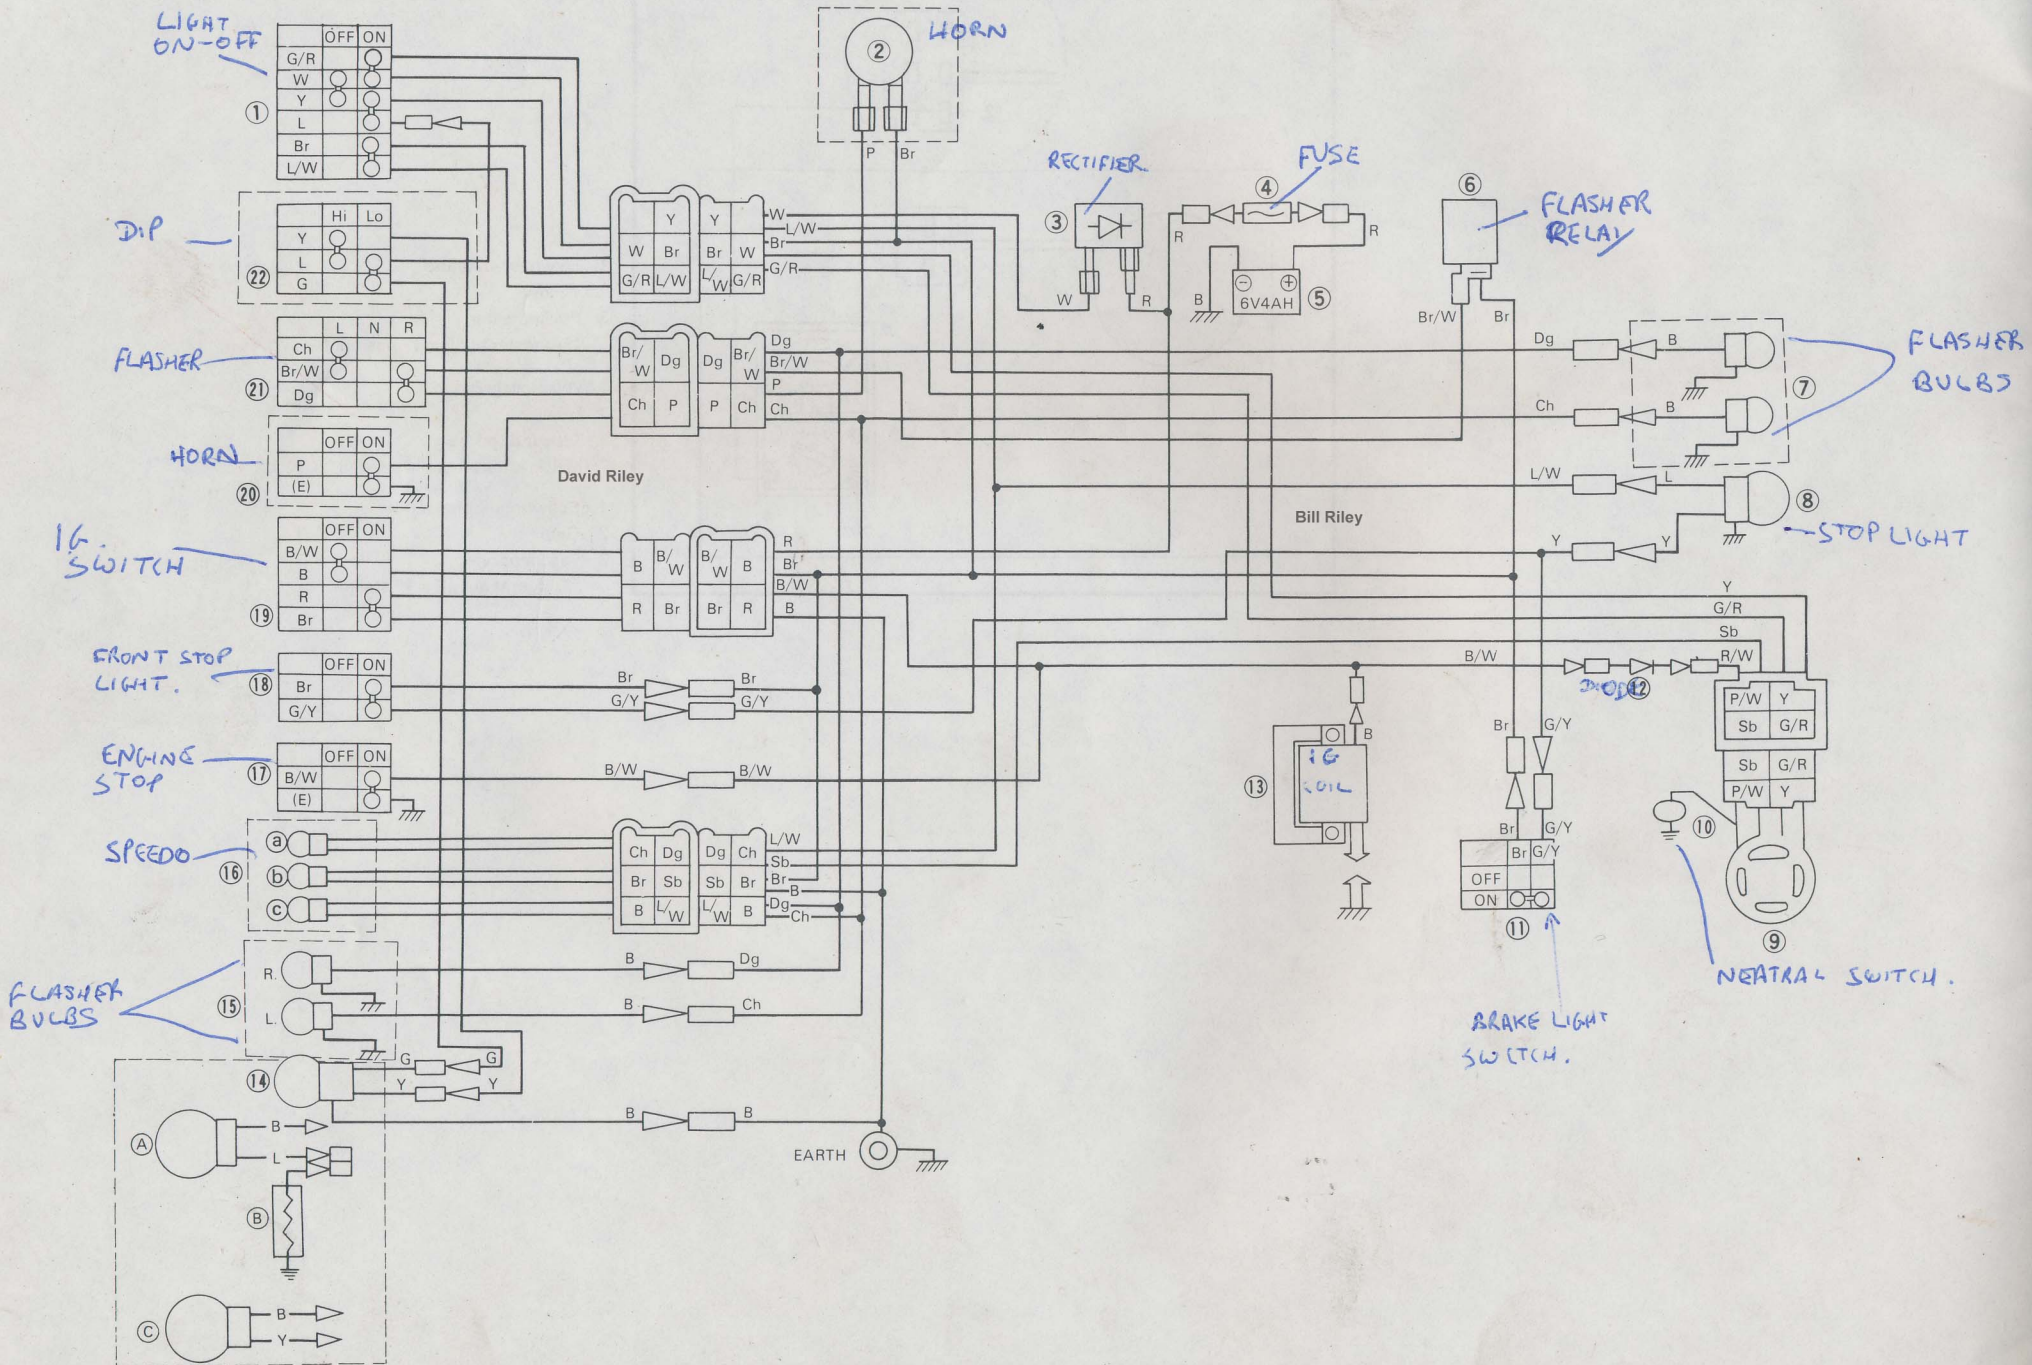 LIGHT
ON-OFF
OFF ON
G/R
W
Y
L
Br
L/W
1
HORN
2
P Br
DIP
Hi Lo
Y
L
G
22
FLASHER
L N R
Ch
Br/W
Dg
21
HORN
OFF ON
P
(E)
20
IG.
SWITCH
OFF ON
B/W
B
R
Br
19
FRONT STOP
LIGHT.
OFF ON
Br
G/Y
18
ENGINE
STOP
OFF ON
B/W
(E)
17
SPEEDO
16
a
b
c
FLASHER
BULBS
15
R.
L.
14
G G
Y Y
A
B
L
B
C
B
Y
Y Y
W Br Br W
G/R L/W L/W G/R
W
L/W
Br
G/R
Br/W Dg Dg Br/W
Ch P P Ch
Dg
Br/W
P
Ch
David Riley
B B/W B/W B
R Br Br R
R
Br
B/W
B
Br Br
G/Y G/Y
B/W B/W
Ch Dg Dg Ch
Br Sb Sb Br
B L/W L/W B
L/W
Sb
Br
B
Dg
Ch
B Dg
B Ch
B B
EARTH
RECTIFIER
3
W R
FUSE
4
R R
B
- +
6V4AH
5
6
FLASHER
RELAY
Br/W Br
Dg B
Ch B
7
FLASHER
BULBS
L/W L
8
Y Y
STOP LIGHT
Bill Riley
Y
G/R
Sb
B/W R/W
DIODE
12
P/W Y
Sb G/R
Sb G/R
P/W Y
10
9
NEATRAL SWITCH.
B
IG
COIL
13
Br G/Y
Br G/Y
Br G/Y
OFF
ON
11
BRAKE LIGHT
SWITCH.